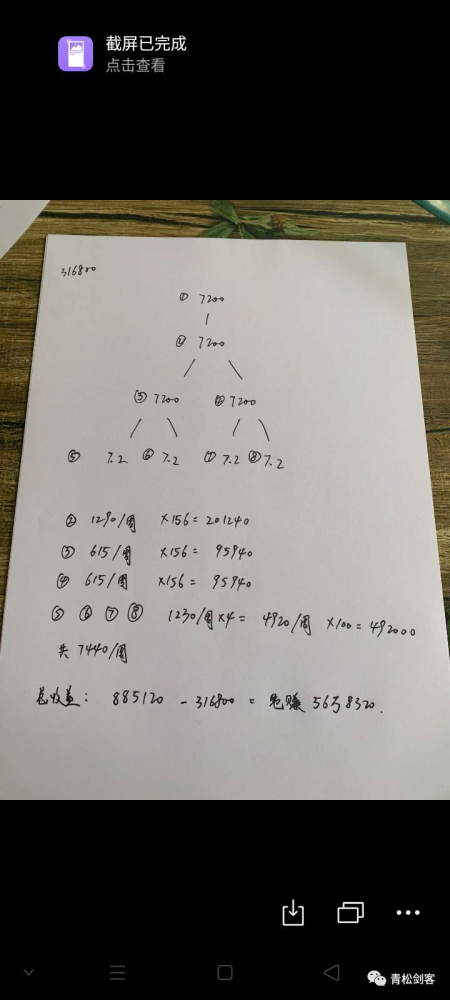 截屏已完成
点击查看
316800
① 7200
② 7200
③ 7200 ④ 7200
⑤ 7.2 ⑥ 7.2 ⑦ 7.2 ⑧ 7.2
② 1290/周 ×156 = 201240
③ 615/周 ×156 = 95940
④ 615/周 ×156 = 95940
⑤ ⑥ ⑦ ⑧ 1230/周×4 = 4920/周 ×100 = 492000
共 7440/周
总收益: 885120 - 316800 = 赚 56万8320.
青松剑客